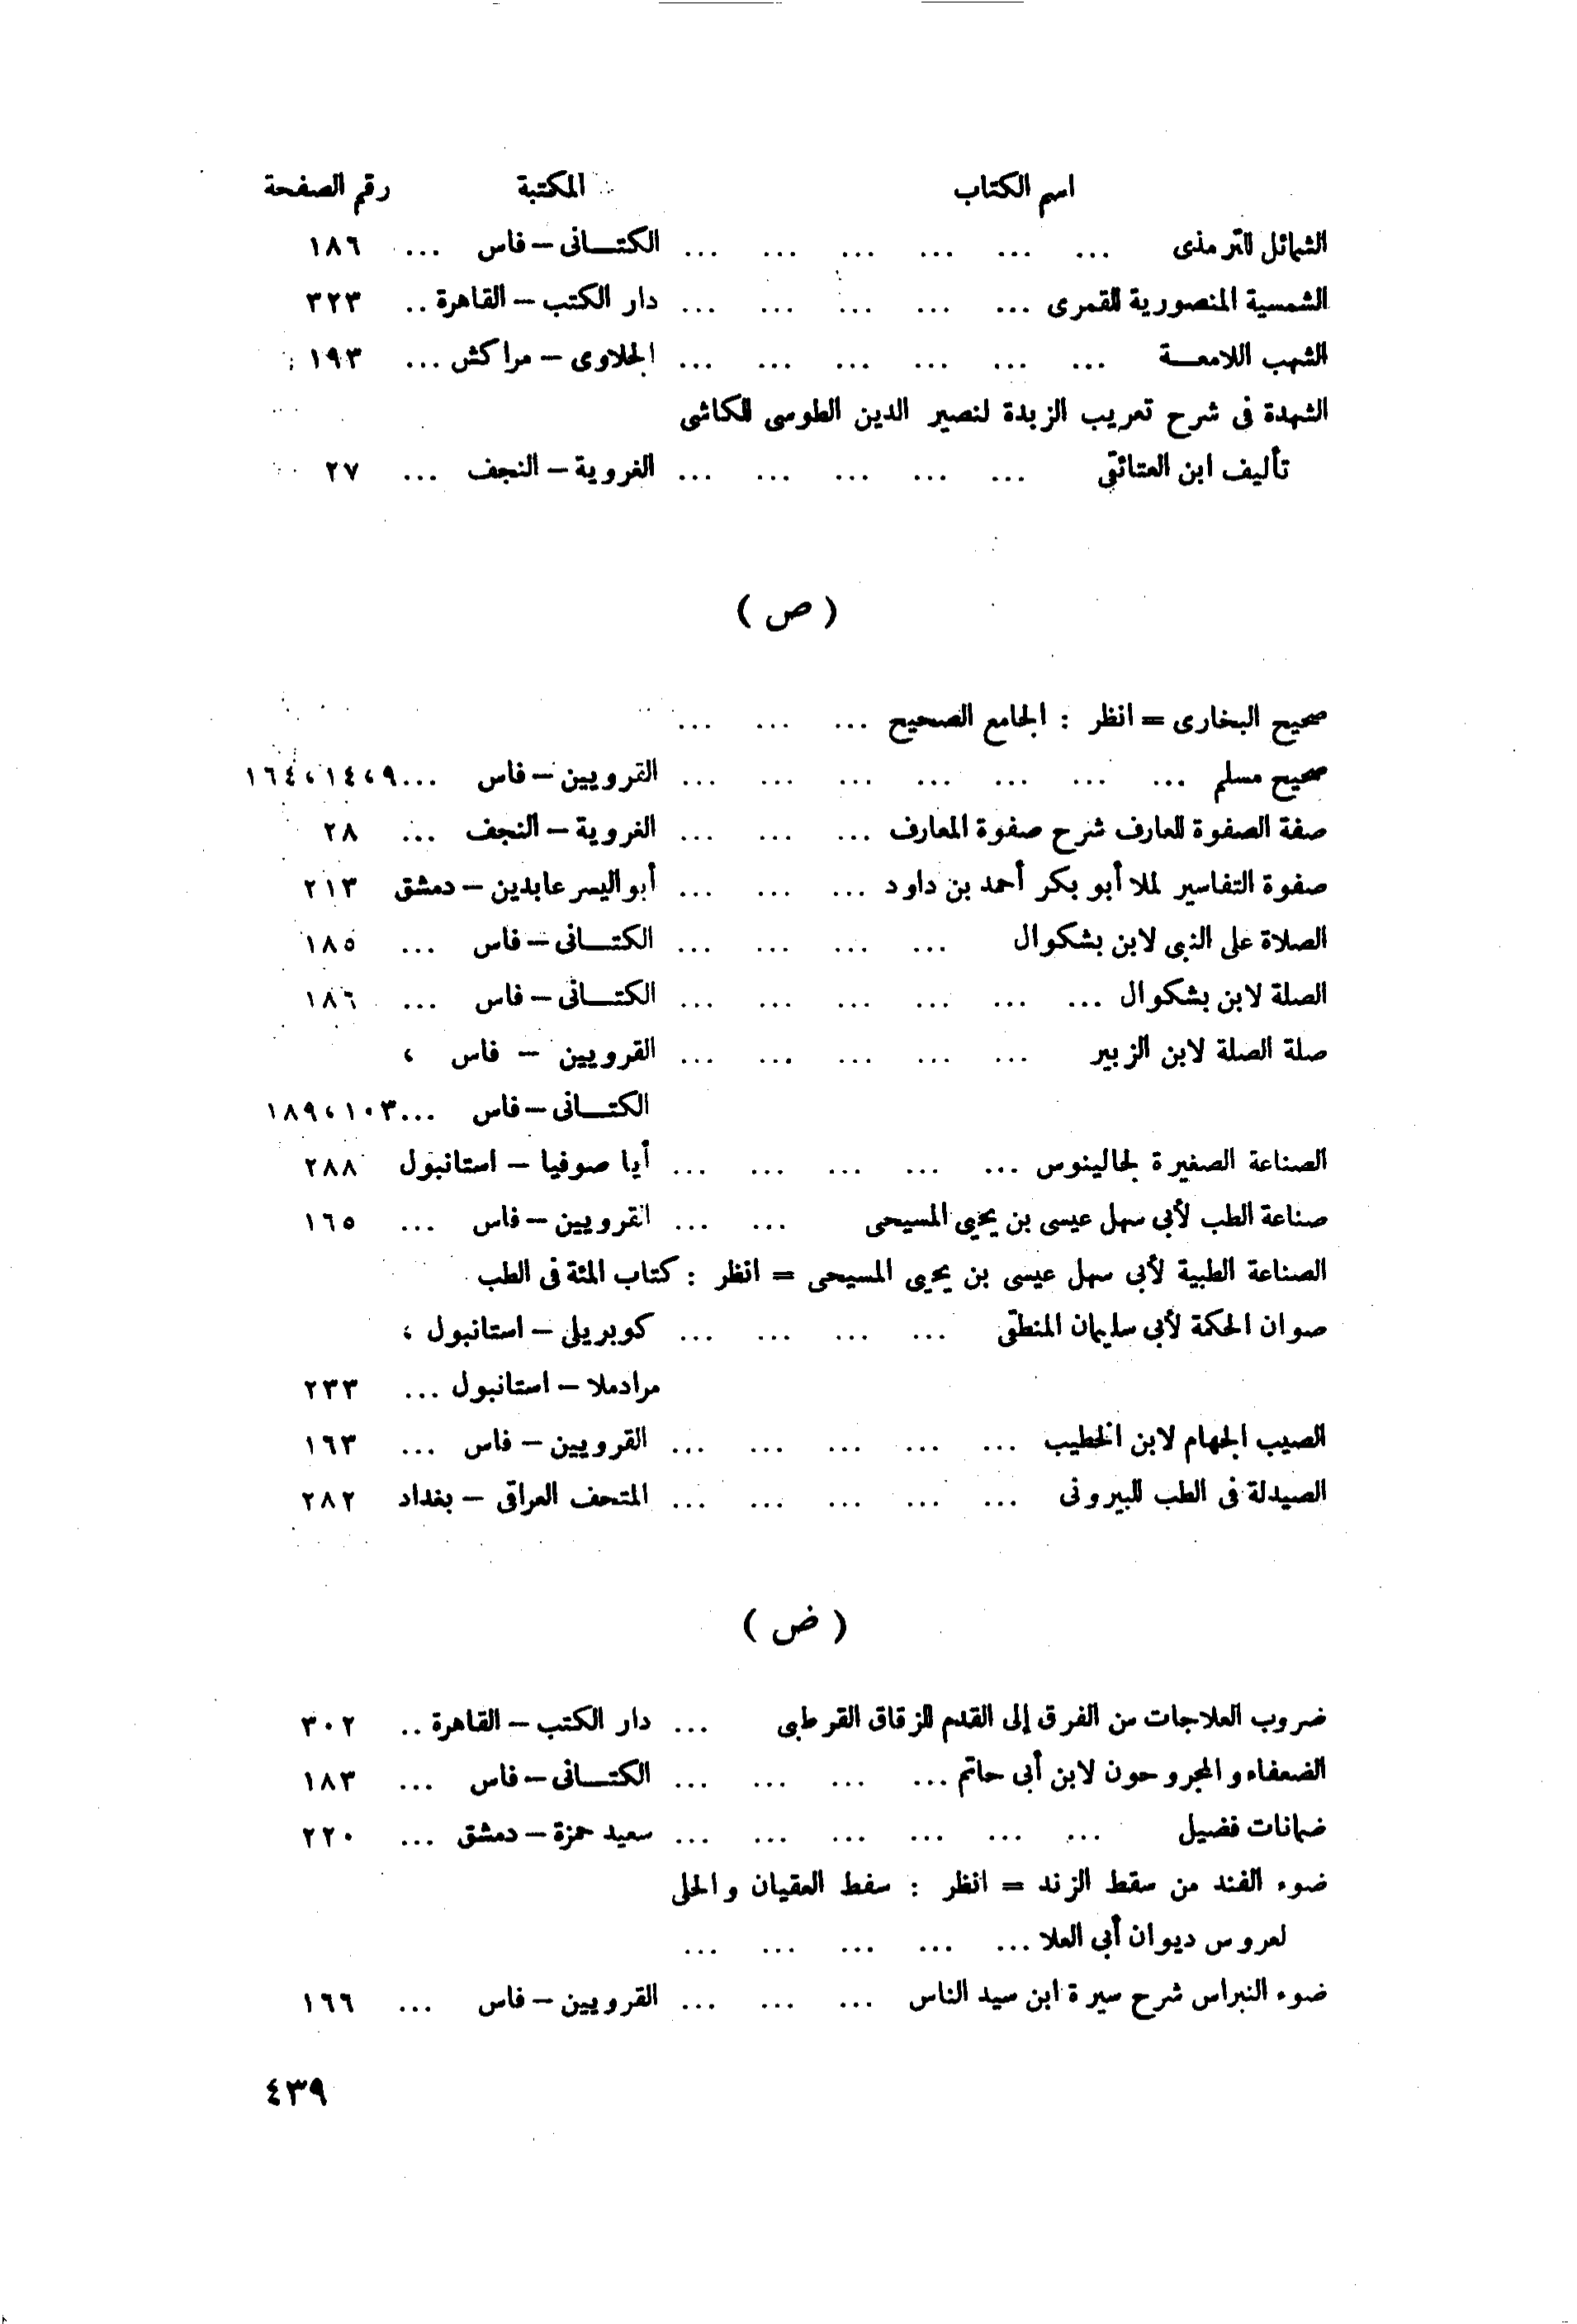 اسم الكتاب المكتبة رقم الصفحة
الشمائل للترمذى ... ... ... ... ... ... الكتــانى – فاس ... ١٨٦
الشمسية المنصورية للقمرى ... ... ... ... ... دار الكتب – القاهرة .. ٣٢٣
الشهب اللامعــة ... ... ... ... ... ... الجلاوى – مراكش ... ١٩٣
الشهدة فى شرح تعريب الزبدة لنصير الدين الطوسى للكاشى
تأليف ابن العتائقى ... ... ... ... ... الغروية – النجف ... ٢٧
( ص )
صحيح البخارى = انظر : الجامع الصحيح ... ... ...
صحيح مسلم ... ... ... ... ... ... ... القرويين – فاس ... ٩ ، ١٤ ، ١٦٤
صفة الصفوة للعارف شرح صفوة المعارف ... ... ... الغروية – النجف ... ٢٨
صفوة التفاسير لملا أبو بكر أحمد بن داود ... ... ... أبو اليسر عابدين – دمشق ٢١٣
الصلاة على النبى لابن بشكوال ... ... ... ... الكتــانى – فاس ... ١٨٥
الصلة لابن بشكوال ... ... ... ... ... ... الكتــانى – فاس ... ١٨٦
صلة الصلة لابن الزبير ... ... ... ... ... القرويين – فاس ،
الكتــانى – فاس ... ١٠٣ ، ١٨٩
الصناعة الصغيرة لجالينوس ... ... ... ... ... أيا صوفيا – استانبول ٢٨٨
صناعة الطب لأبى سهل عيسى بن يحيى المسيحى ... ... القرويين – فاس ... ١٦٥
الصناعة الطبية لأبى سهل عيسى بن يحيى المسيحى = انظر : كتاب المئة فى الطب
صوان الحكمة لأبى سليمان المنطقى ... ... ... ... كوبريلى – استانبول ،
مراد ملا – استانبول ... ٢٣٣
الصيب الجهام لابن الخطيب ... ... ... ... ... القرويين – فاس ... ١٦٣
الصيدلة فى الطب للبيرونى ... ... ... ... ... المتحف العراقى – بغداد ٢٨٢
( ض )
ضروب العلاجات من الفرق إلى القدم للزقاق القرطبى ... دار الكتب – القاهرة .. ٣٠٢
الضعفاء والمجروحون لابن أبى حاتم ... ... ... ... الكتــانى – فاس ... ١٨٣
ضمانات فضيل ... ... ... ... ... ... سعيد حمزة – دمشق ... ٢٢٠
ضوء الفند من سقط الزند = انظر : سفط العقيان والحلى
لعروس ديوان أبى العلا ... ... ... ... ...
ضوء النبراس شرح سيرة ابن سيد الناس ... ... ... القرويين – فاس ... ١٦٦
٤٣٩